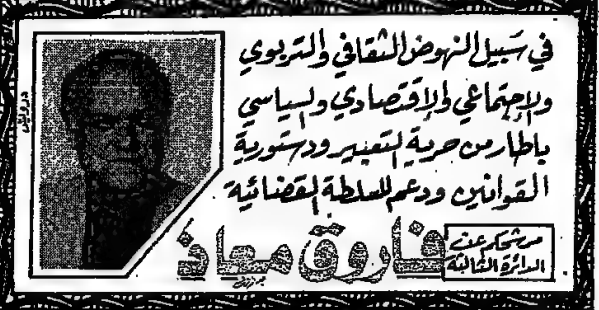 في سبيل النهوض الثقافي والتربوي
والإجتماعي والإقتصادي والسياسي
باطار من حرية التعبير ودستورية
القوانين ودعم للسلطة القضائية
مرشحكم عن
الدائرة الثالثة
فاروق معاذ
درويش